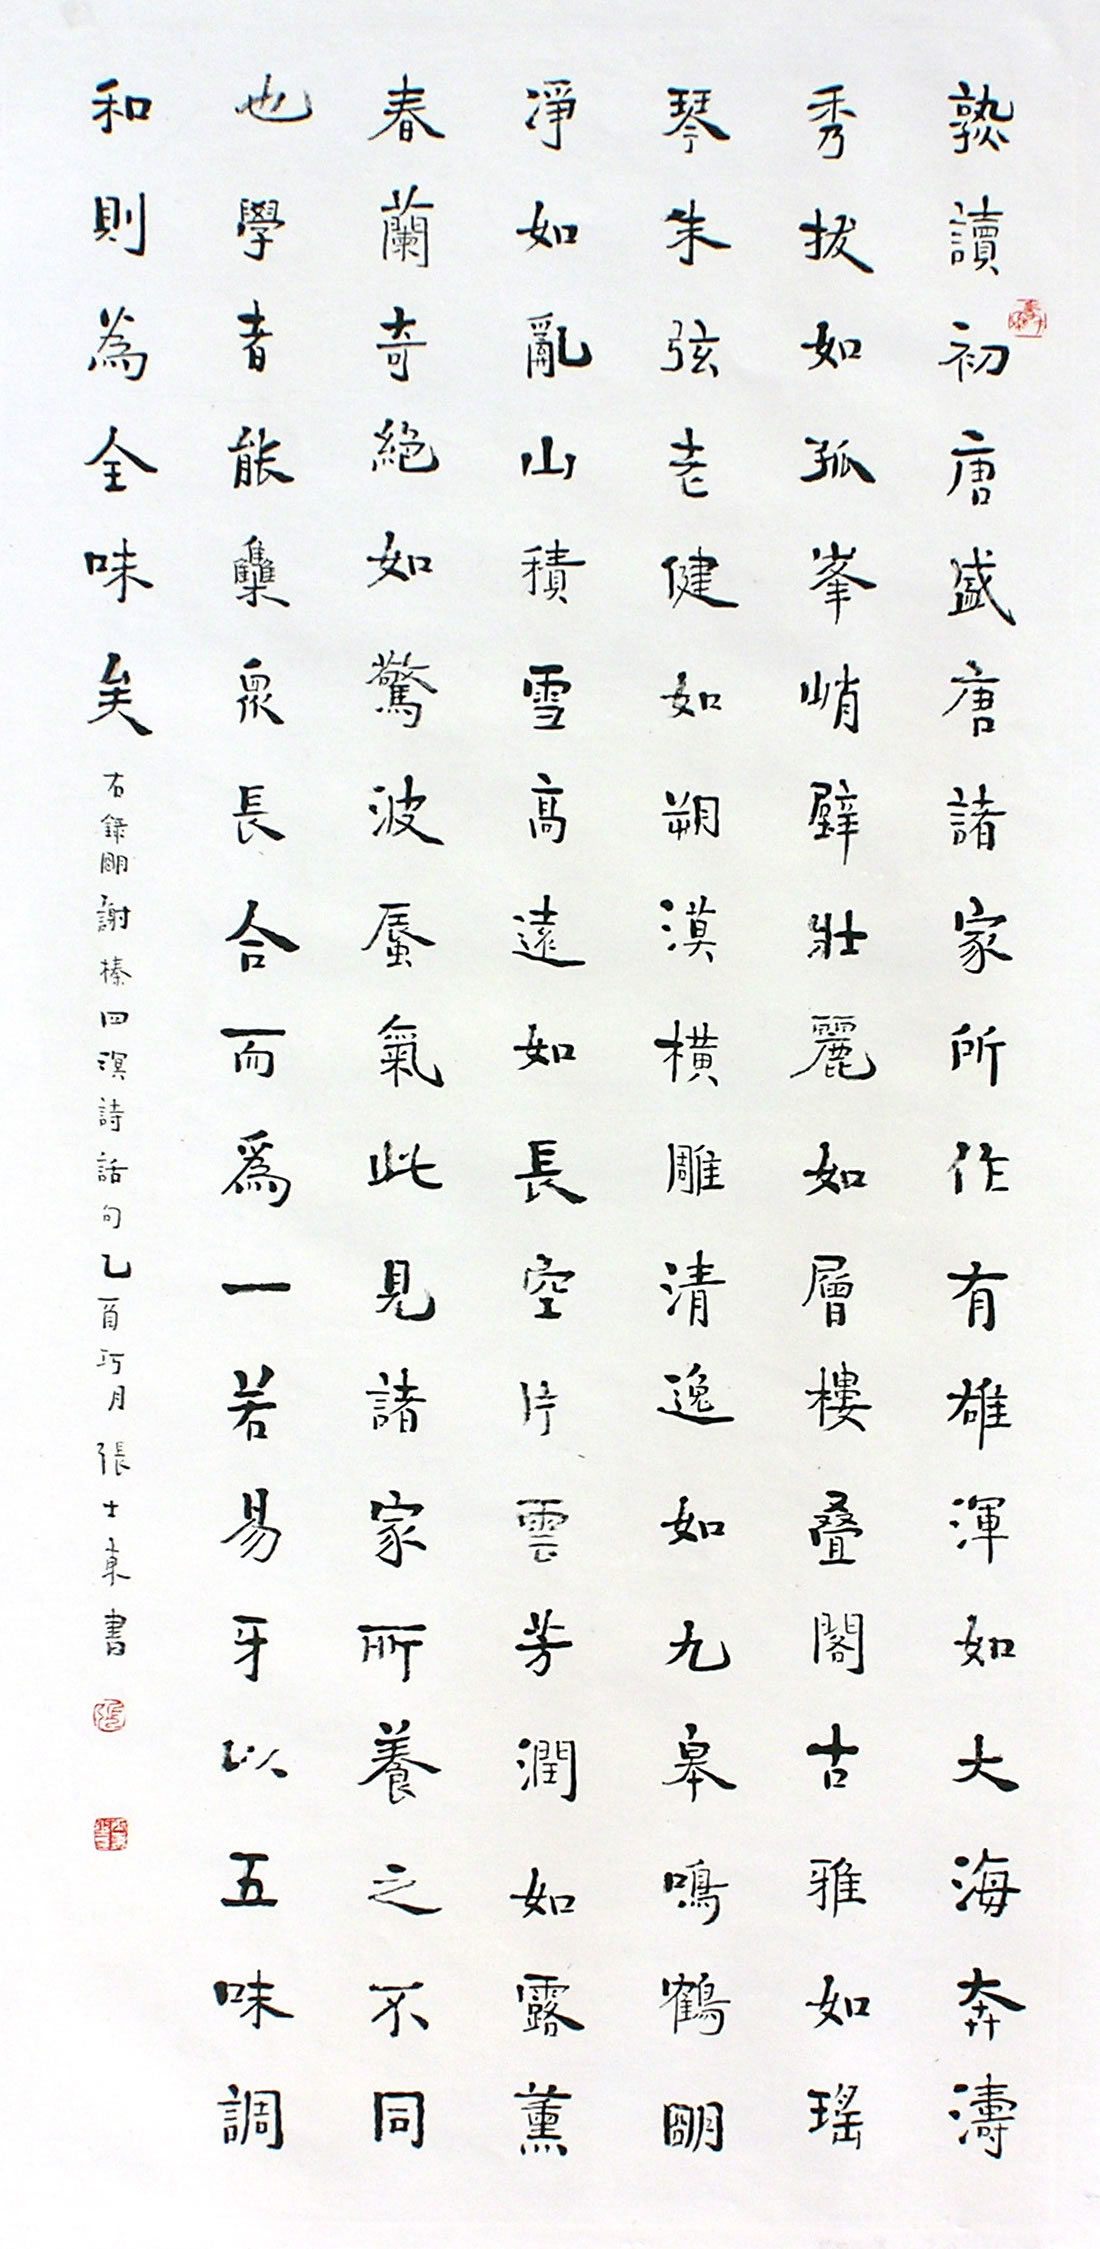 熟讀初唐盛唐諸家所作有雄渾如大海奔濤
秀拔如孤峯峭壁壯麗如層樓叠閣古雅如瑤
琴朱弦老健如朔漠橫雕清逸如九皋鳴鶴明
淨如亂山積雪高遠如長空片雲芳潤如露蕙
春蘭奇絕如驚波蜃氣此見諸家所養之不同
也學者能集眾長合而為一若易牙以五味調
和則為全味矣
右錄明謝榛四溟詩話句乙酉巧月張士東書